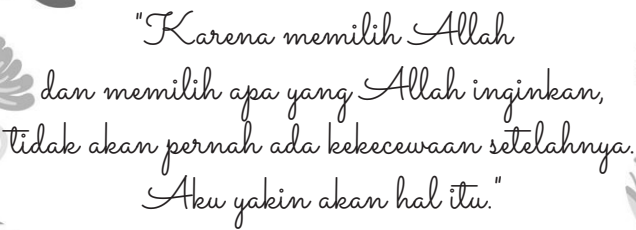 "Karena memilih Allah
dan memilih apa yang Allah inginkan,
tidak akan pernah ada kekecewaan setelahnya.
Aku yakin akan hal itu."